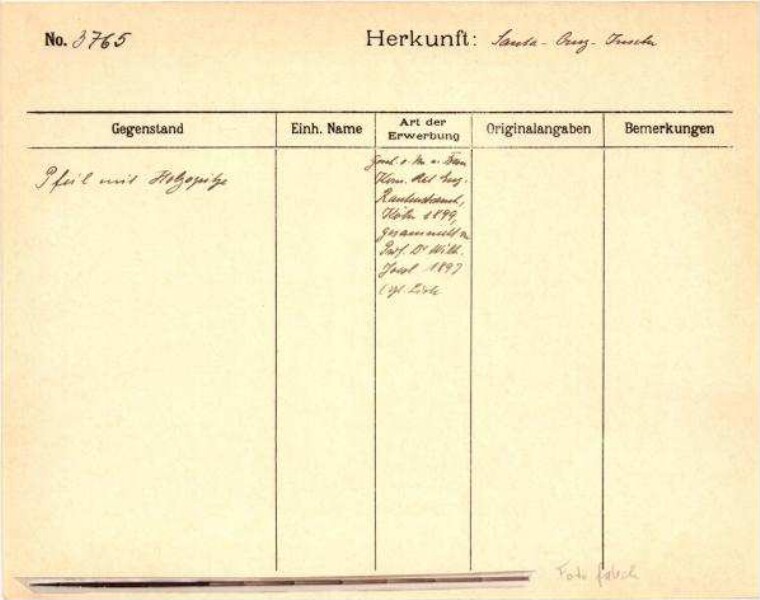 No. 3765
Herkunft: Santa-Cruz-Inseln
Gegenstand
Einh. Name
Art der
Erwerbung
Originalangaben
Bemerkungen
Pfeil mit Holzspitze
Gesch. v. Hr. u. Frau
Kom. Rat Eug.
Rautenstrauch,
Köln 1899,
gesammelt v.
Prof. Dr Wilh.
Joest 1897
(vgl. Liste
Foto falsch